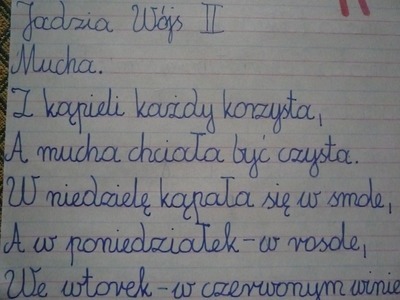 Jadzia Wójs II
Mucha.
Z kąpieli każdy korzysta,
A mucha chciała być czysta.
W niedzielę kąpała się w smole,
A w poniedziałek-w rosole,
We wtorek-w czerwonym winie